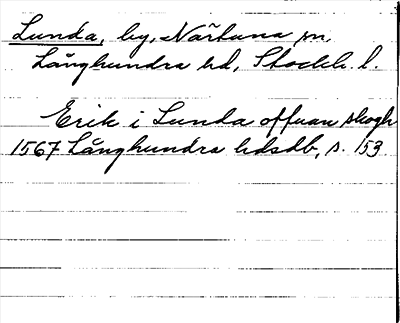 Lunda, by, Närtuna sn,
Långhundra hd, Stockh. l.
Erik i Lunda offuan skogh
1567 Långhundra hdsdb, s. 153